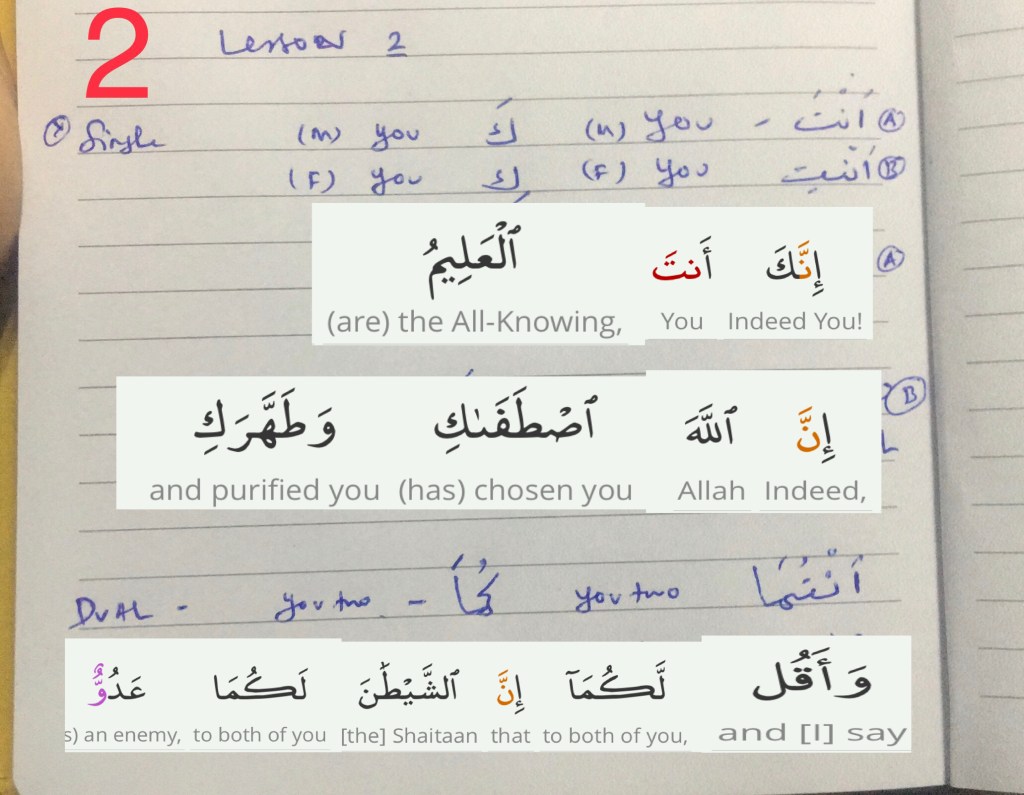 2 Lesson 2
Single (M) you كَ (M) you - اَنْتَ A
(F) you كِ (F) you اَنْتِ B
إِنَّكَ أَنتَ ٱلْعَلِيمُ A
(are) the All-Knowing, You Indeed You!
إِنَّ ٱللَّهَ ٱصْطَفَىٰكِ وَطَهَّرَكِ B
and purified you (has) chosen you Allah Indeed,
DUAL - you two - كُمَا you two اَنْتُمَا
وَأَقُل لَّكُمَآ إِنَّ ٱلشَّيْطَٰنَ لَكُمَا عَدُوٌّ
s) an enemy, to both of you [the] Shaitaan that to both of you, and [I] say